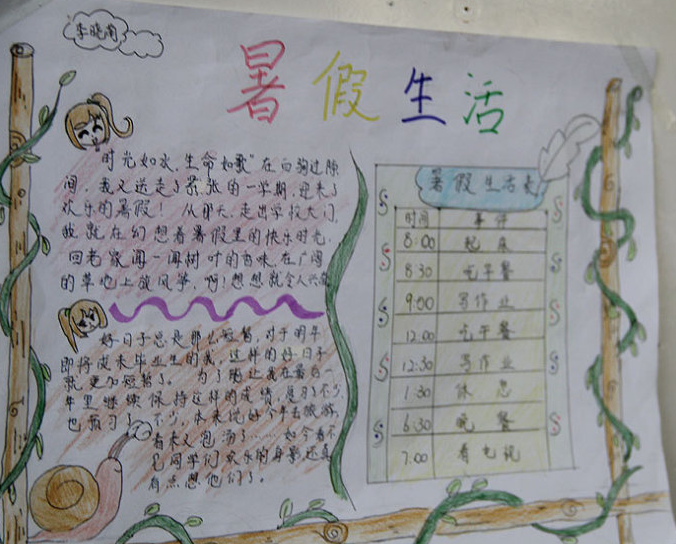 李晓南
暑假生活
时光如水,生命如歌"在白驹过隙
间,我又送走了紧张的一学期,迎来了
欢乐的暑假!从那天,走出学校大门,
我就在幻想着暑假里的快乐时光,
回老家闻一闻树叶的香味,在广阔
的草地上放风筝,啊!想想就令人兴奋
好日子总是那么短暂,对于明年
即将成未毕业生的我,这样的好日子
就更加短暂了。为了能让我在最后一
年里继续保持这样的成绩,复习了不少,
也预习了不少,本来说好今年去旅游,
看来又泡汤了……如今看不
见同学们欢乐的身影还真
有点想他们了。
暑假生活表
时间 事件
8:00 起床
8:30 吃早餐
9:00 写作业
12:00 吃午餐
12:30 写作业
1:30 休息
6:30 晚餐
7:00 看电视